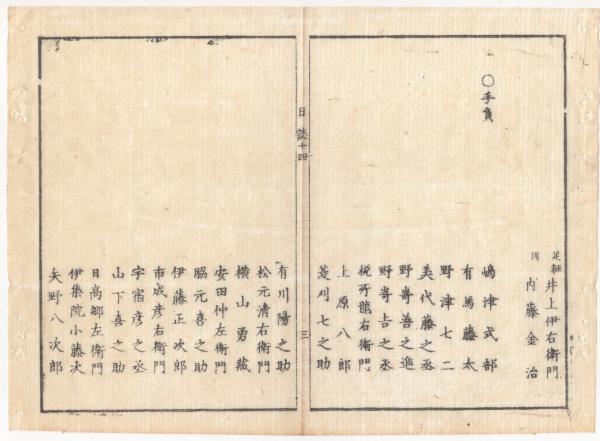 足軽 井上伊右衛門
同 内藤金治
〇手負
嶋津式部
有馬藤太
野津七二
美代藤之丞
野嵜吾之進
野嵜吉之丞
税所龍右衛門
上原八郎
菱刈七之助
日誌十四
三
有川陽之助
松元清右衛門
横山勇蔵
安田仲左衛門
脇元喜之助
伊藤正次郎
市成彦右衛門
宇宿彦之丞
山下喜之助
日高郷左衛門
伊集院小藤次
矢野八次郎